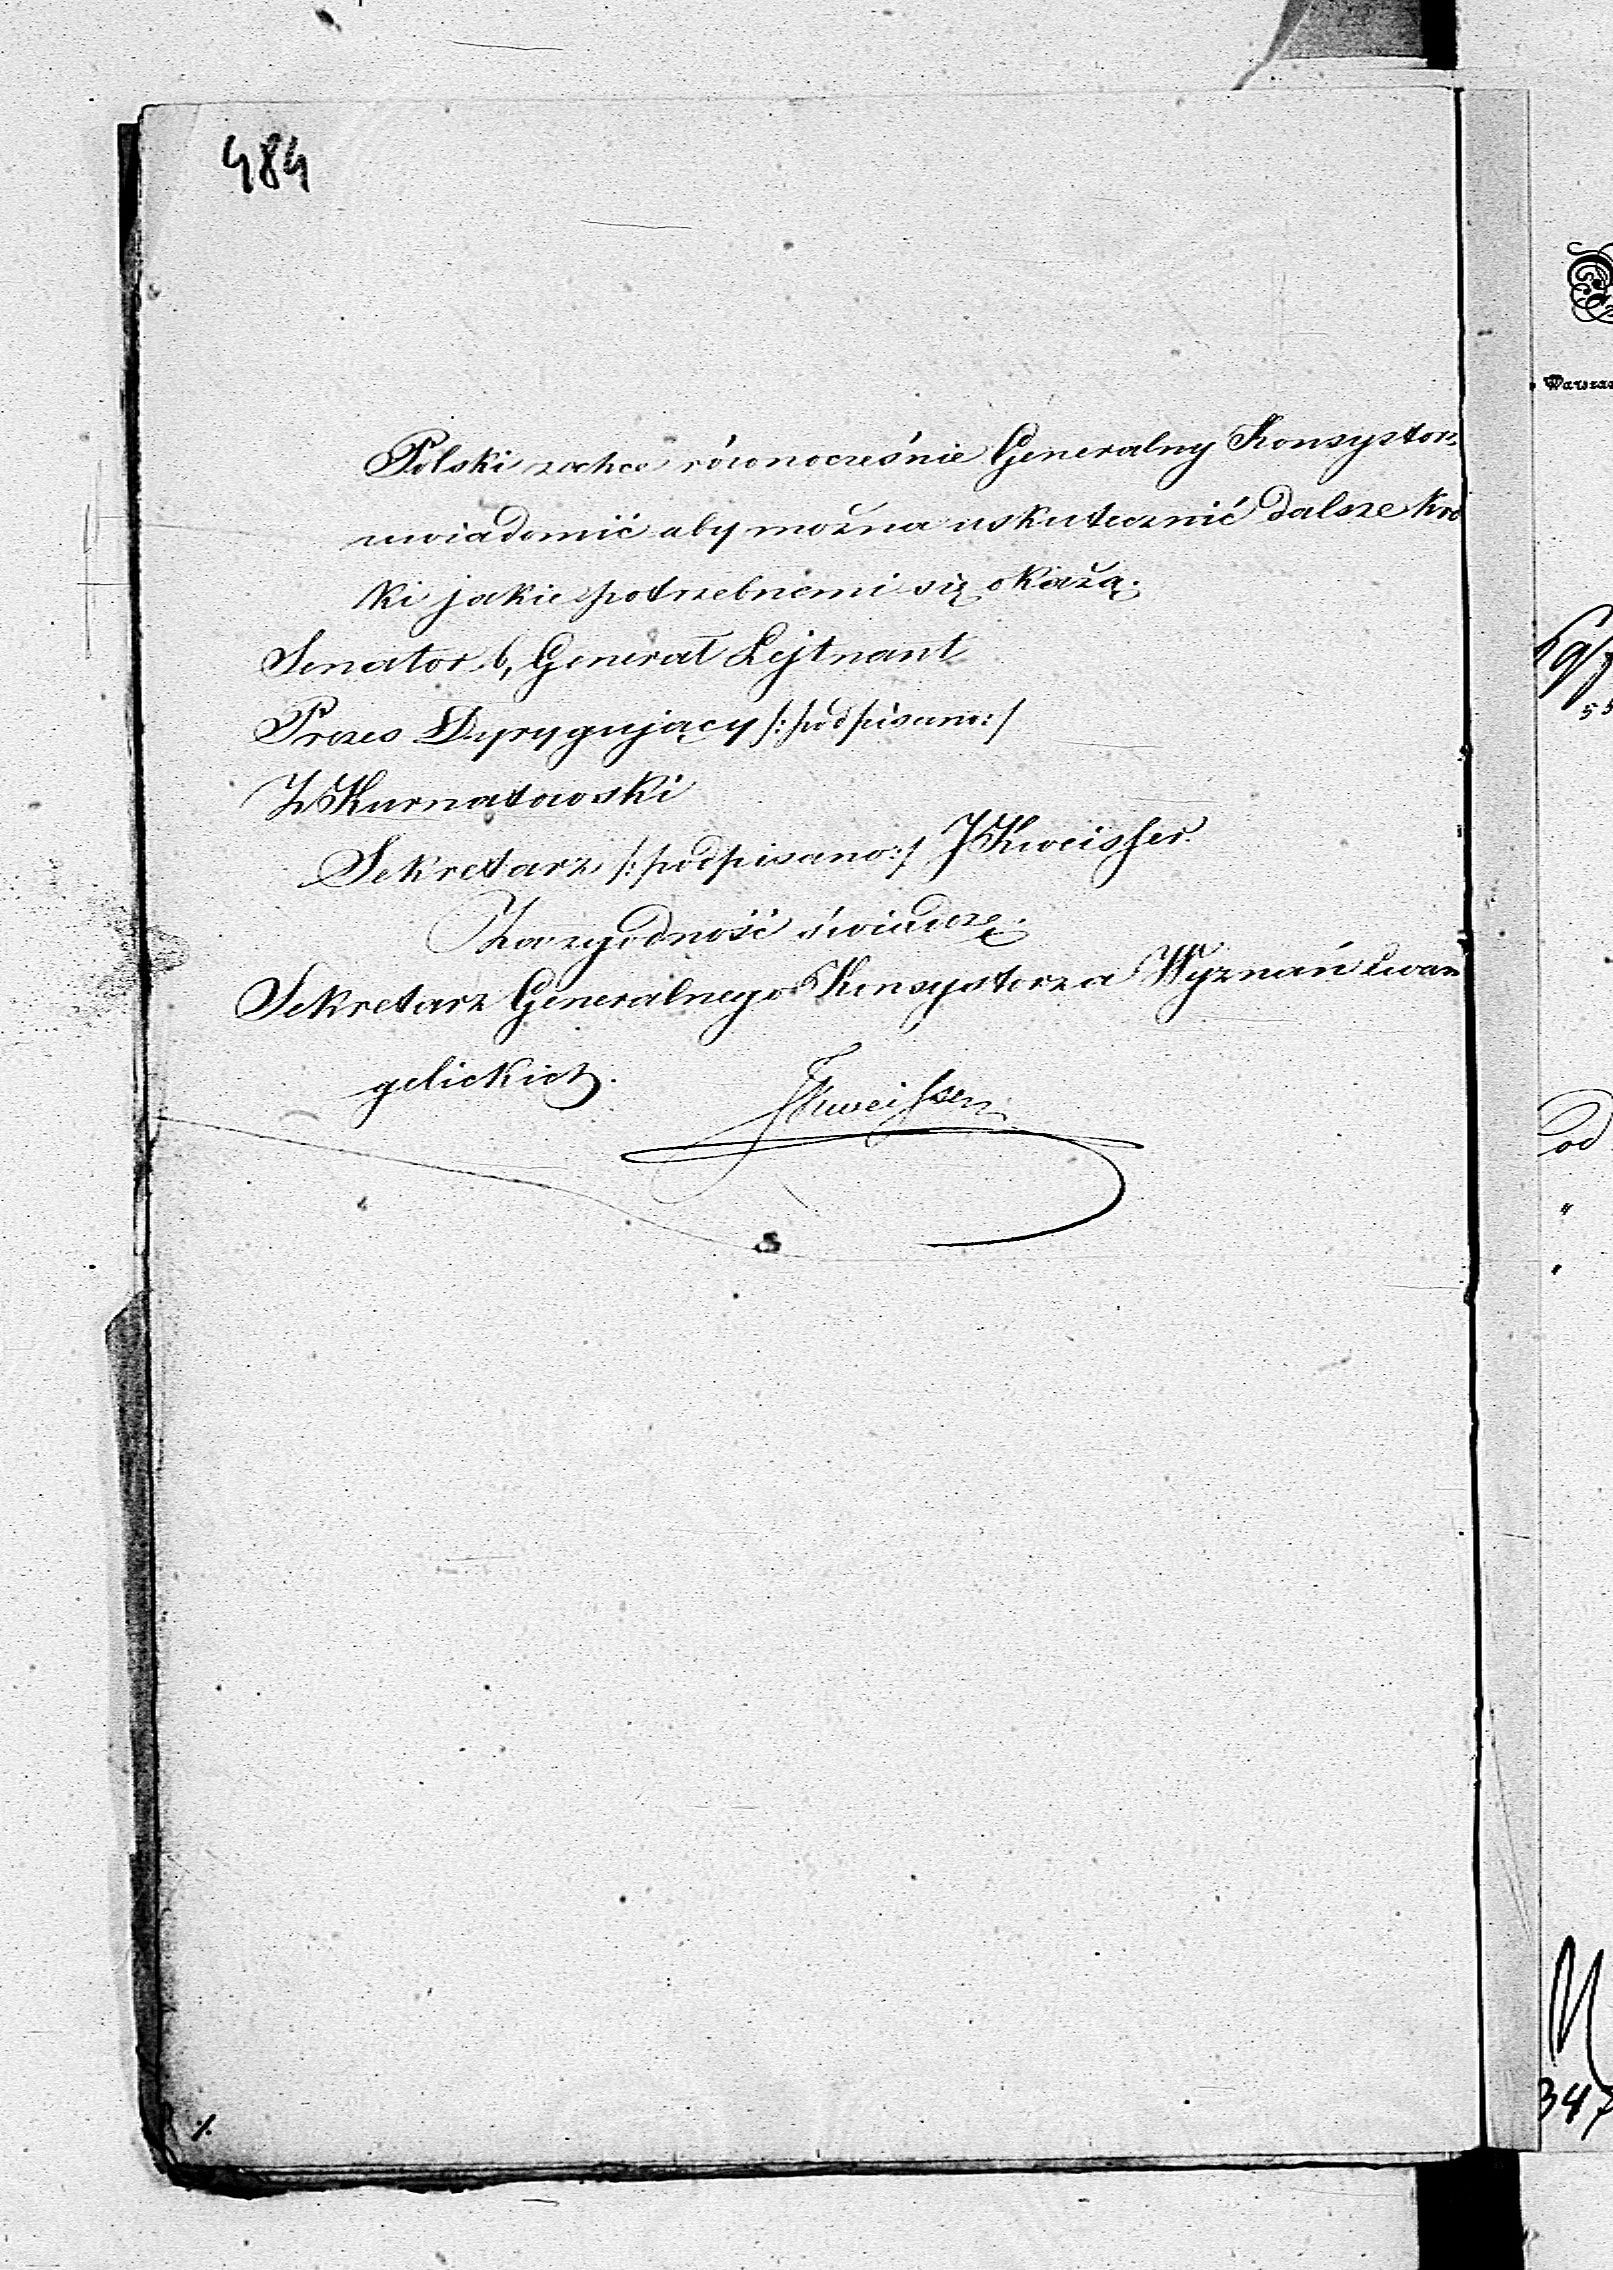 484
Polski zechce równocześnie Generalny Konsystorz
uwiadomić aby można uskutecznić dalsze kro
ki jakie potrzebnemi się okażą.
Senator, Generał Lejtnant
Prezes Dyrygujący /:podpisano:/
Z Kurnatowski
Sekretarz /:podpisano:/ J Kweisser.
Za zgodność świadczę.
Sekretarz Generalnego Konsystorza Wyznań Ewan
gelickich.
JKweisser
Warsza
od
347